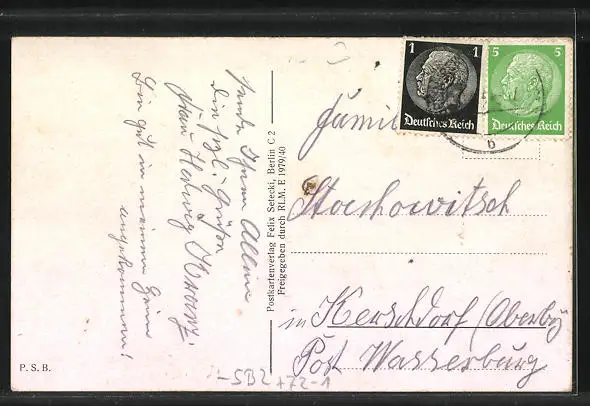 Sende Ihnen Allen
die hzl. Grüße
Frau Hedwig
Bin gut in meinem Heim
angekommen!
Postkartenverlag Felix Setecki, Berlin C 2
Freigegeben durch RLM. E 1979/40
P. S. B.
1 1
Deutsches Reich
5 5
Deutsches Reich
b
Stochowitsch
in Kerschdorf (Oberby
Post Wasserburg